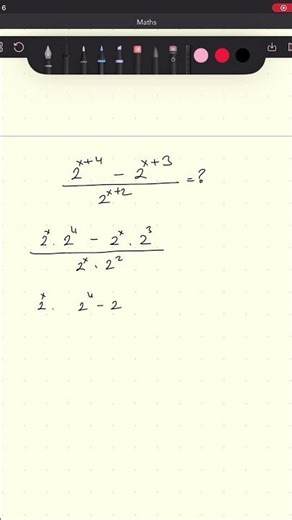 6
Maths
2^{x+4} - 2^{x+3}
2^{x+2} = ?
2^x . 2^4 - 2^x . 2^3
2^x . 2^2
2^x . 2^4 - 2